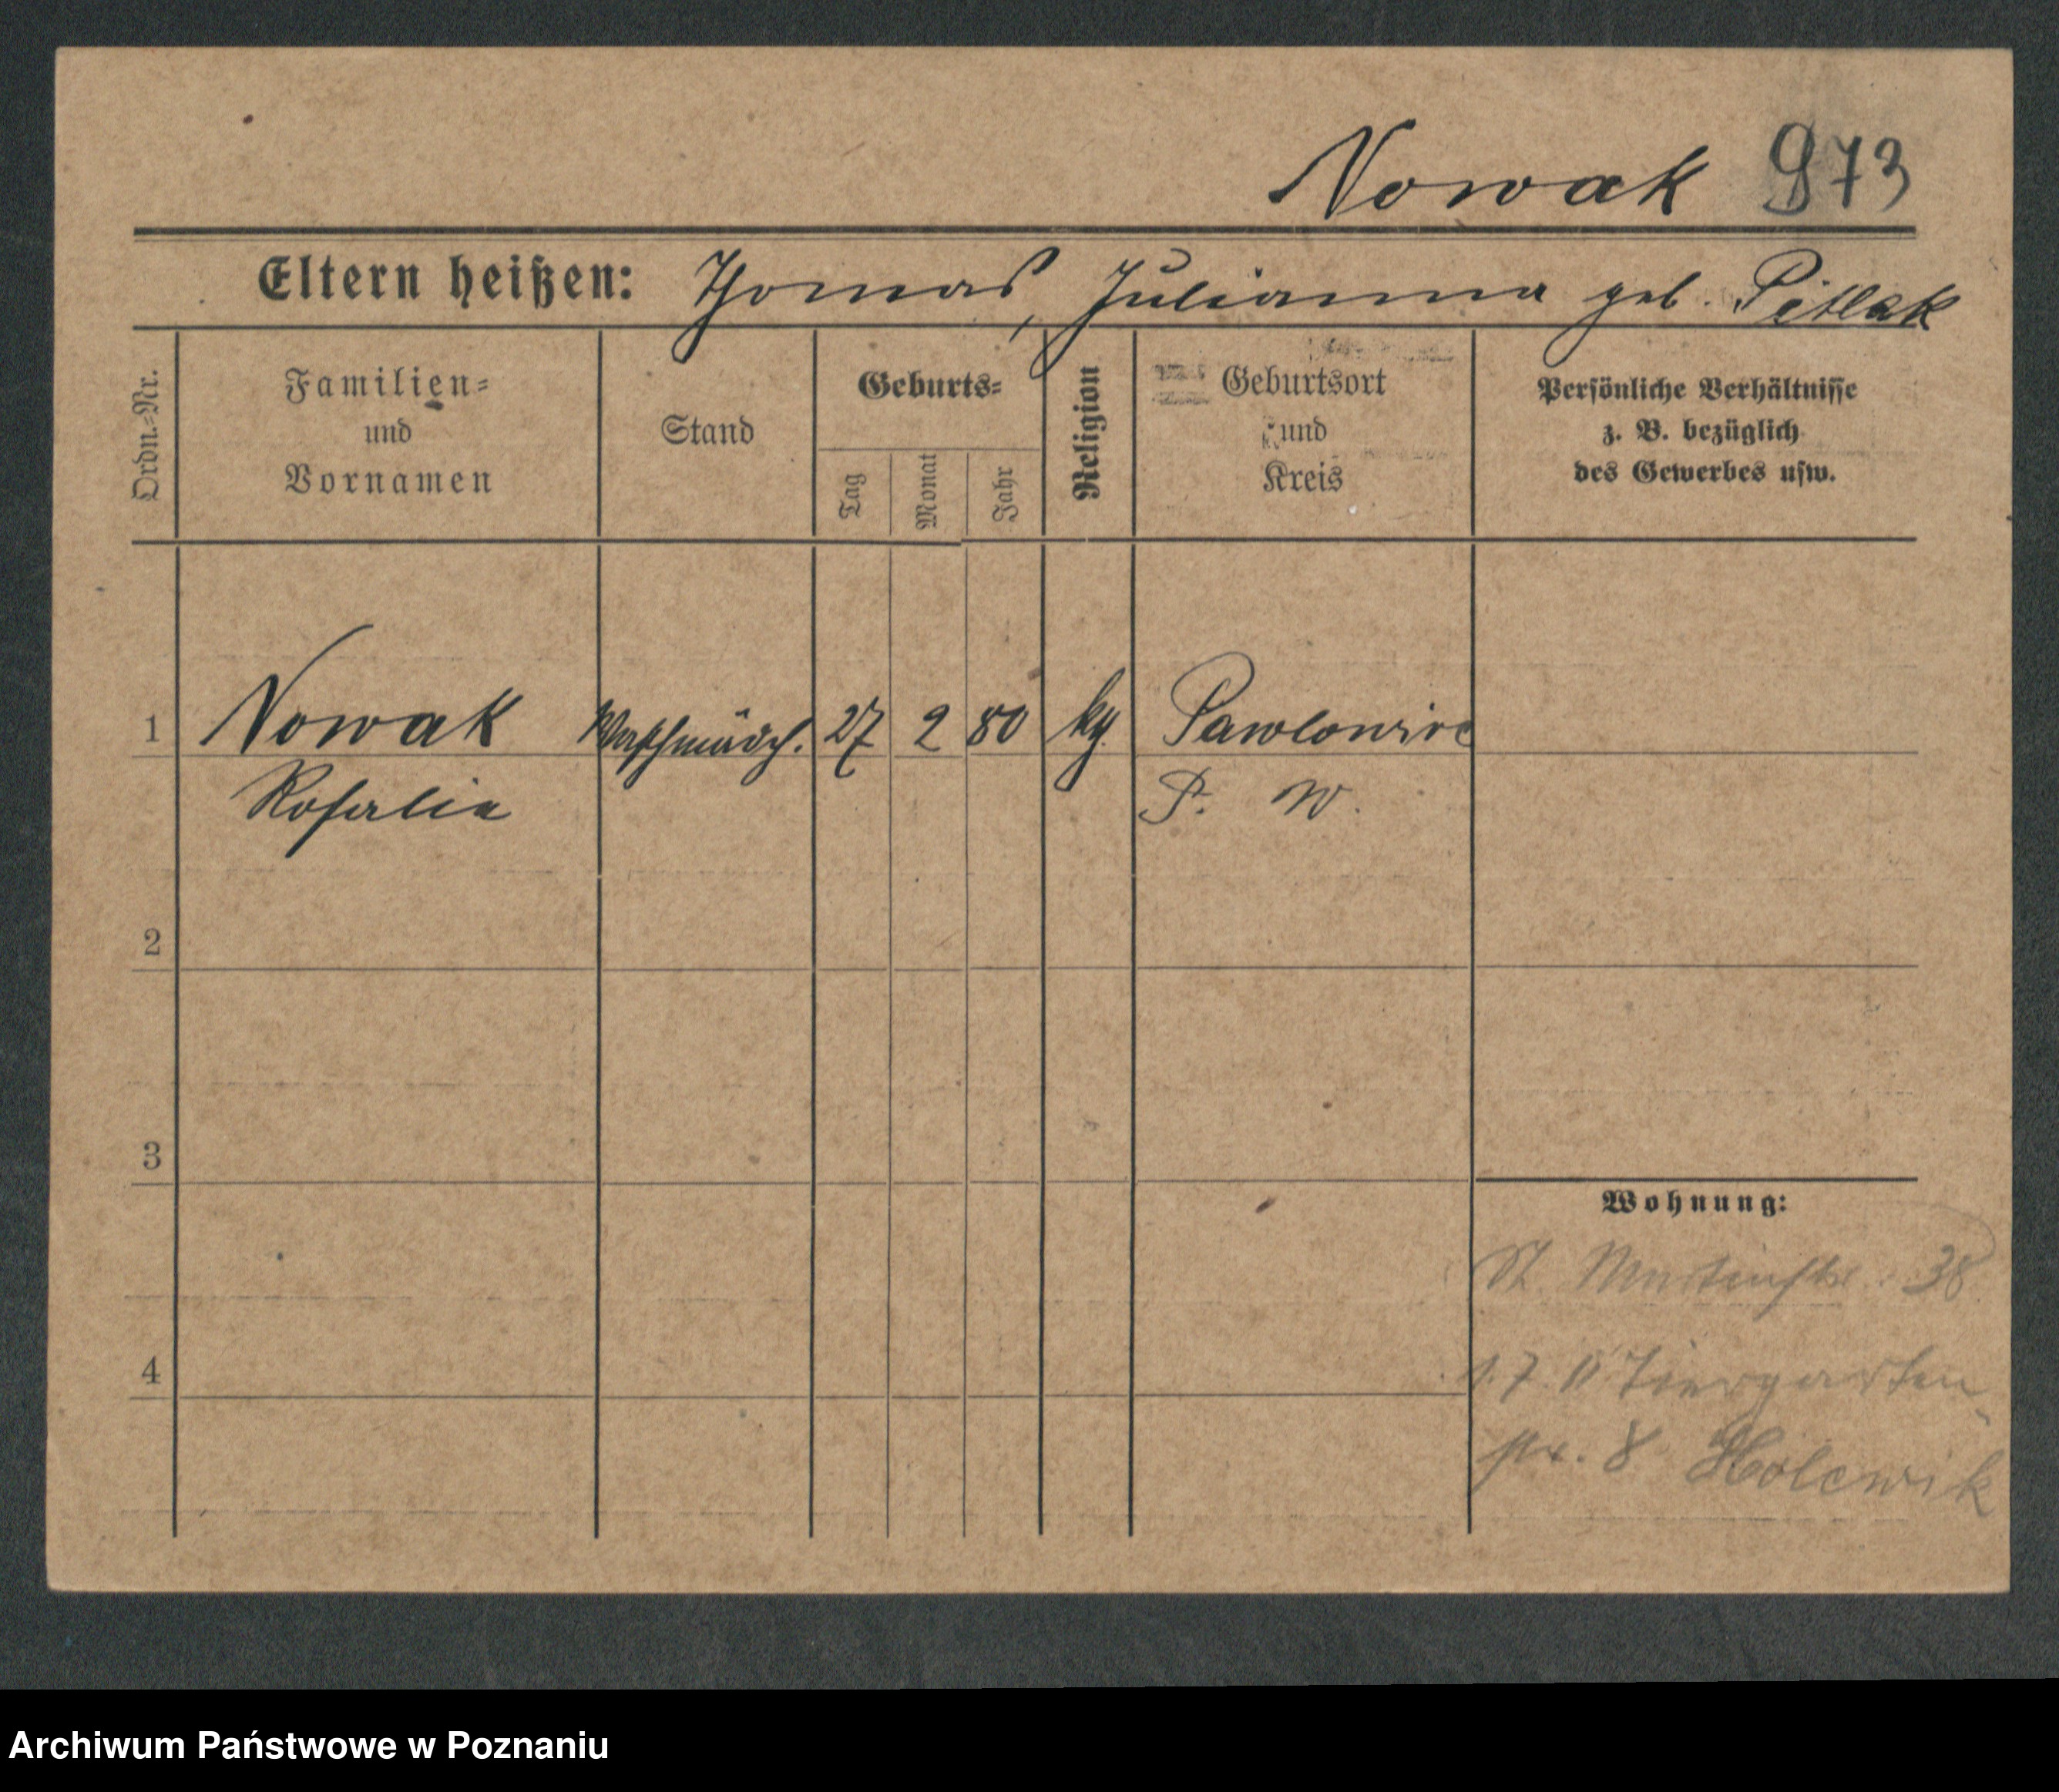 Nowak 973
Eltern heißen: Thomas, Julianna geb. Pitlak
Ordn.-Nr.
Familien-
und
Vornamen
Stand
Geburts-
Tag
Monat
Jahr
Religion
Geburtsort
und
Kreis
Persönliche Verhältnisse
z. B. bezüglich
des Gewerbes usw.
1 Nowak 27 2 80 kg. Pawlowice
Rosalie P. W.
2
3
Wohnung:
St. Martinstr. 38
4
Tiergarten
str. 8
Archiwum Państwowe w Poznaniu